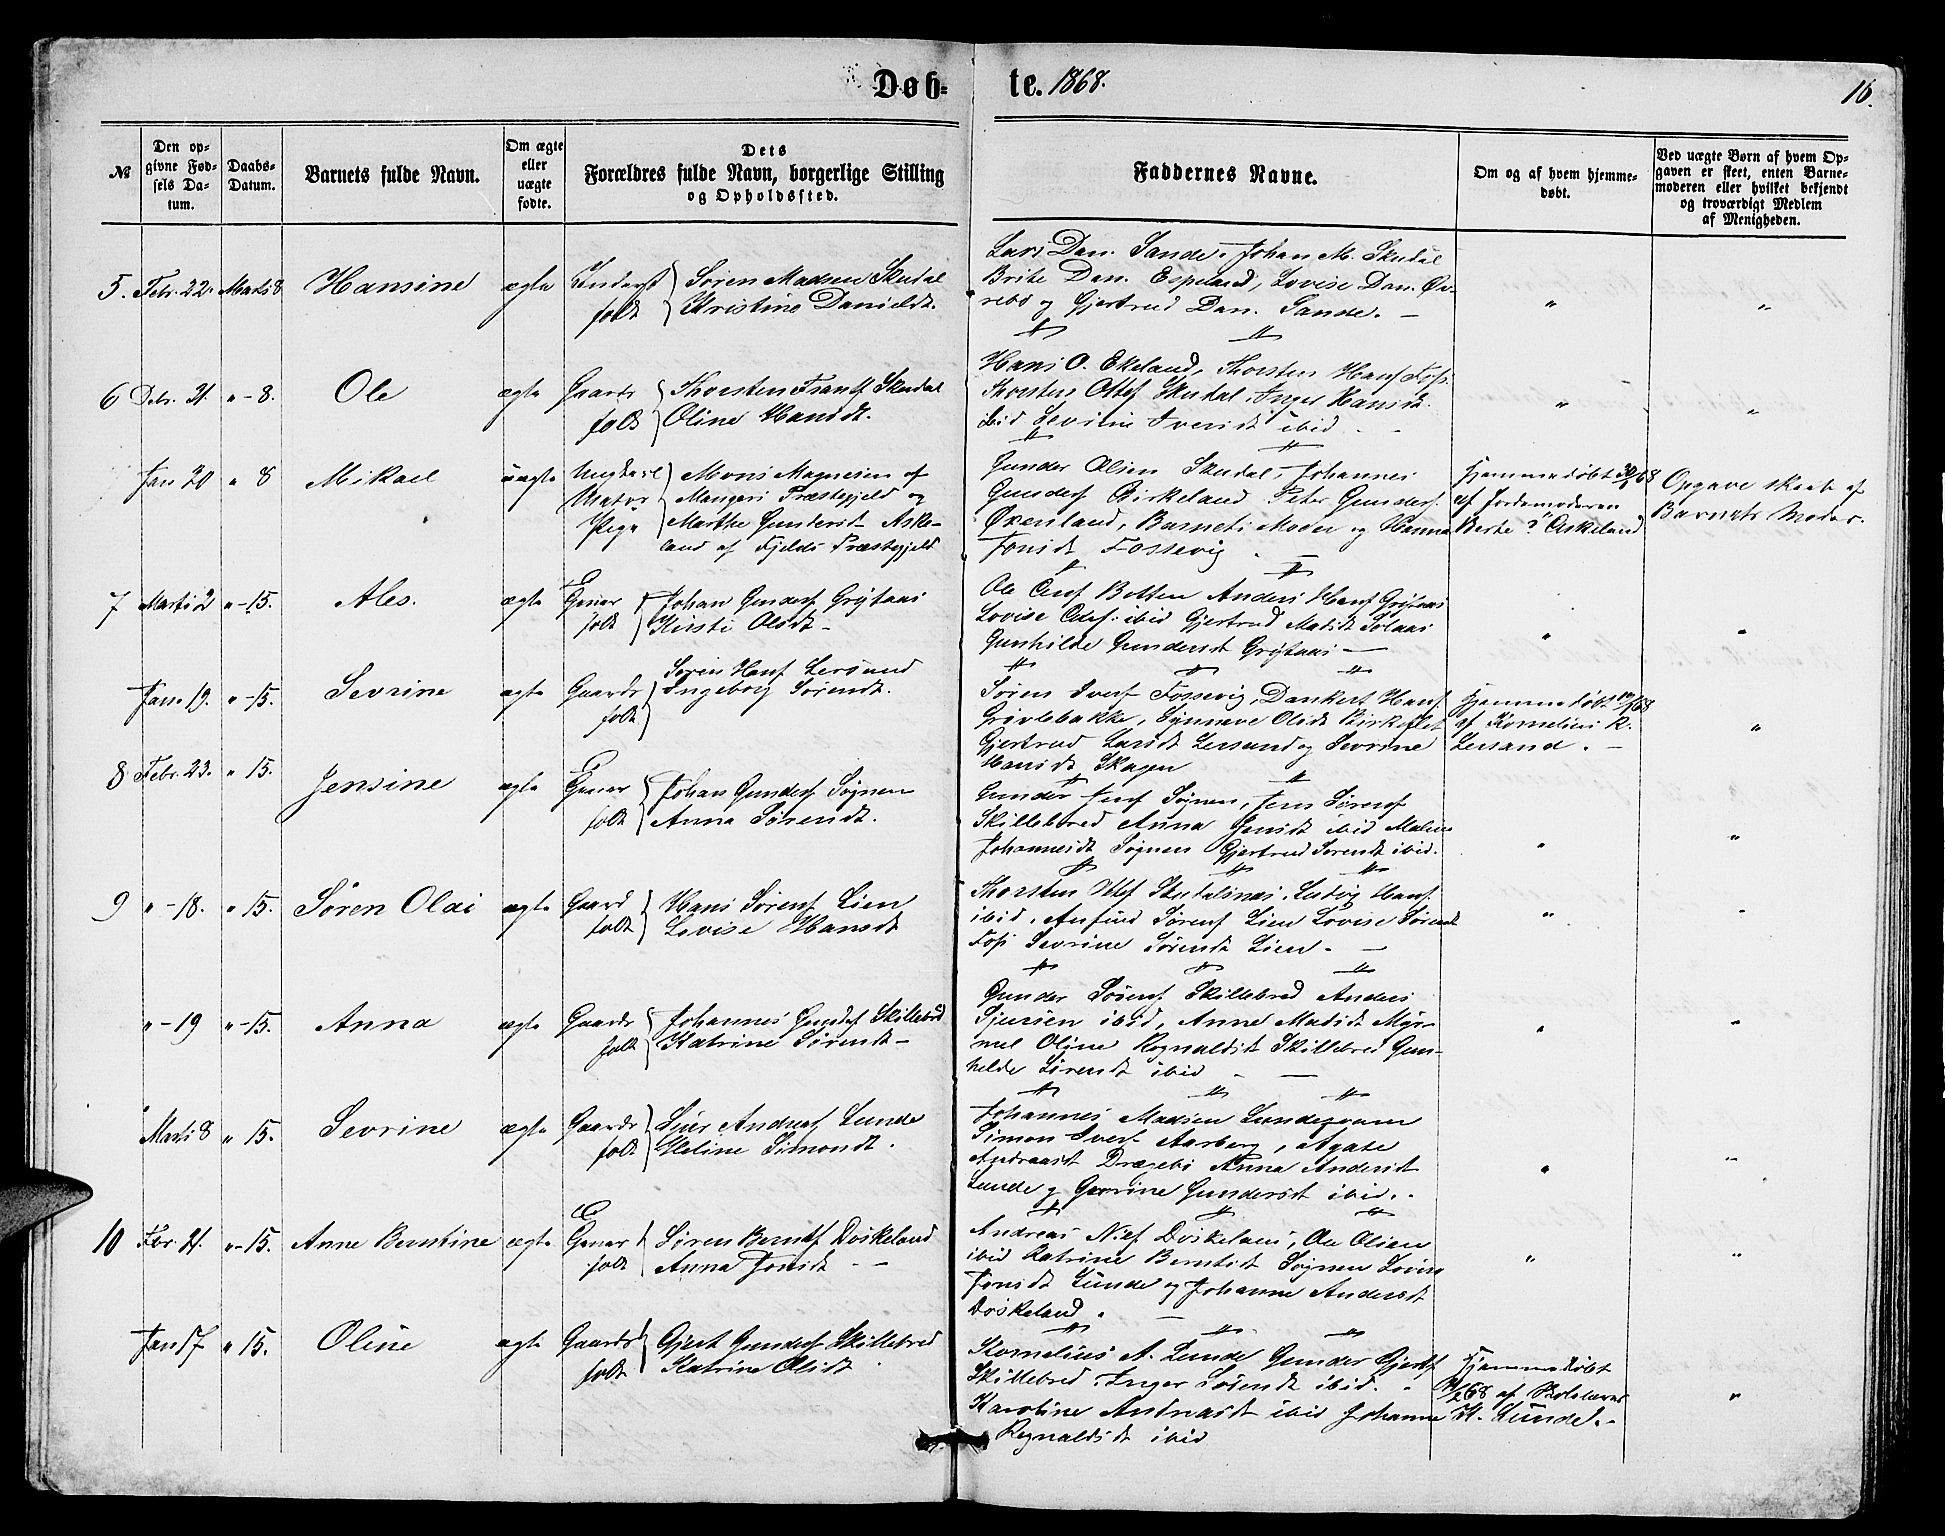 Døb-te. 1868. 16.
№
Den op-
givne Fød-
sels Da-
tum.
Daabs-
Datum.
Barnets fulde Navn.
Om ægte
eller
uægte
fødte.
Dets
Forældres fulde Navn, borgerlige Stilling
og Opholdssted.
Faddernes Navne.
Om og af hvem hjemme-
døbt.
Ved uægte Børn af hvem Op-
gaven er skeet, enten Barne-
moderen eller hvilket bekjendt
og troværdigt Medlem
af Menigheden.
5. Febr. 22. Marts 8 Hansine ægte
folk
Søren Madsen Skudal
Kristine Danieldt.
Lars Dan. Sande, Johan M. Skudal
Brite Dan. Espeland, Lovise Dan. Øv-
rebø og Gjertrud Dan. Sande. —
„ „
6 Debr. 31. „ - 8. Ole ægte Gaardb
folk
Thorsten Skudal
Oline Hansdt.
Hans O. Ekeland, Thorsten Hansf Foss.
Thorsten Ottef Skudal, Inger Hansdt.
ibid Sevrine Iversdt ibid
„ „
Jan 20 „ 8 Mikael uægte Ungkarl
Pige
Mons Magnesen af
Mangers Præstegjeld og
Marthe Gundersdt Aske-
land af Fjelds Præstegjeld
Gunder Olsen Skudal, Johannes
Gundersf Birkeland Peter Gundersf.
Øxenland, Barnets Moder og Hanna
Jonsdt Fossevig
Hjemmedøbt 30/1 68
af Jordemoderen
Berte Askeland
Opgave skeet af
Barnets Moder.
7 Marts 2 „ - 15. Ales. ægte Gaar
folk
Johan Gundersf Grytaas
Kirsti Olsdt —
Ole Bottен Anders Hansf Grytaas
Lovise ibid Gjertrud Madsdt Solaas
Gunhilde Gundersdt Grytaas —
„ „
Jan. 19. „ - 15. Sevrine ægte Gaardb
folk
Søren Hansf Lersund
Ingeborg Sørensdt.
Søren Iversf Fossevig, Dankert Hansf
Grøvlebakke, Synneve Olsdt Birkeflet
Gjertrud Larsdt Lersund og Sevrine
Hansdt Skagen
Hjemmedøbt 19/1 68
af Kornelius R.
Lersund. —
„
8 Febr. 23. „ 15. Jensine ægte
folk
Johan Gundersf Søgnen
Anna Sørensdt.
Gunder Jensf Søgnen, Jens Sørensf
Skillebred Anna Jensdt ibid Malene
Johannesdt Søgnen Gjertrud Sørensdt ibid.
„ „
9 „ - 18. „ 15. Søren Olai ægte Gaard
folk
Hans Sørensf Lien
Lovise Hansdt
Thorsten Ottef Skudalsnes, Ludvig Hansf.
ibid, Anfind Sørensf Lien Lovise Sørensdt
Foss Sevrine Sørensdt Lien. —
„ „
„ - 19 „ - 15. Anna ægte Gaardb
folk
Johannes Gundersf Skillebred
Katrine Sørensdt —
Gunder Sørensf Skillebred Anders
Sjursen ibid, Anne Madsdt Myr-
mel Oline Rognaldsdt Skillebred Gun-
helde Sørensdt ibid —
„ „
Marts 8 „ 15. Sevrine ægte Gaardb
folk
Sjur Andreasf Lunde
Heline Simonsdt.
Johannes Madsen Lunde
Simon Iversf Aarberg, Agate
Andreasdt Drægebø Anna Andersdt
Lunde og Gundersdt ibid.
„ „
10 Febr. 21. „ - 15. Anne Berntine ægte
folk
Søren Berntsf Døskeland
Anna Jonsdt —
Andreas Døskeland, Ole Olsen
ibid Katrine Berntsdt Søgnen Lovise
Jonsdt Lunde og Johanne Andersdt
Døskeland. —
„ „
Jan 17 „ 15. Oline ægte Gaardb
folk
Gjert Gundersf Skillebred
Katrine Olsdt
Kornelius A. Lunde Gunder Gjertsf
Skillebred, Inger Sørensdt ibid.
Karoline Andreasdt ibid Johanne
Rognaldsdt ibid
Hjemmedøbt
68 af Skolelærer
K. Lunde. —
„